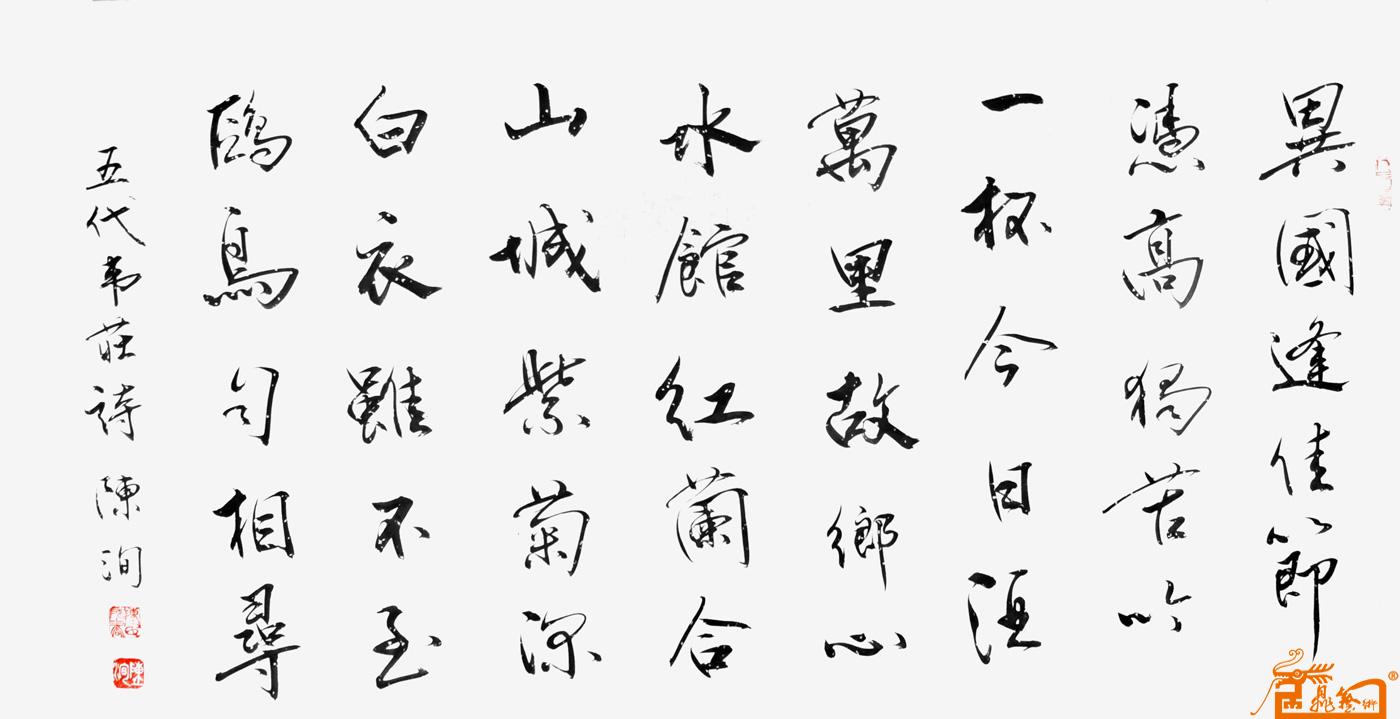 異國逢佳節
憑高獨苦吟
一杯今日酒
萬里故鄉心
水館紅蘭合
山城紫菊深
白衣雖不至
鷗鳥自相尋
五代韦莊詩 陳洵
陳洵